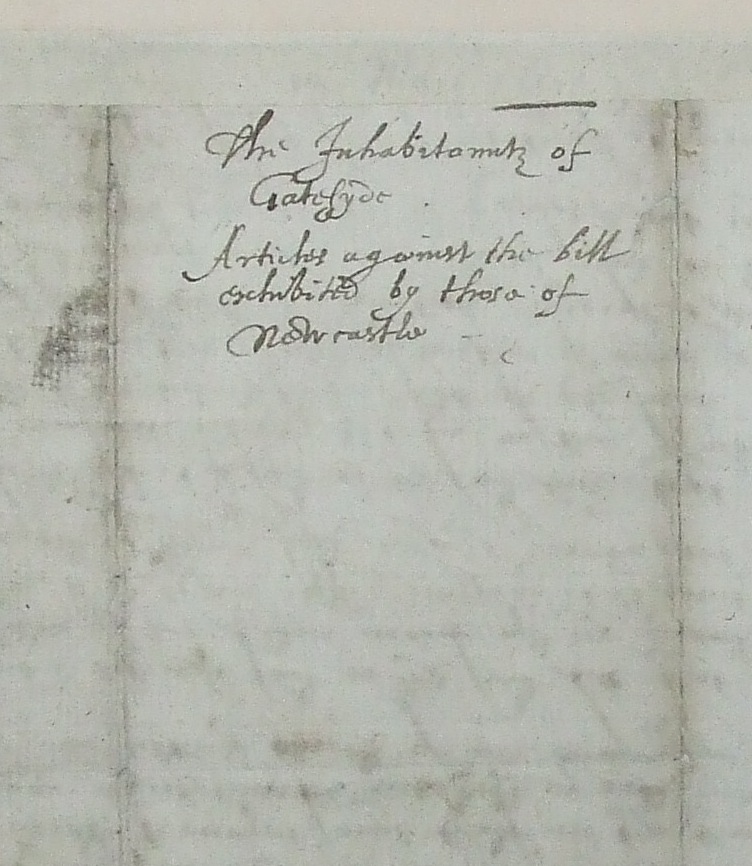 The Inhabitantes of
Gatesyde
Articles against the bill
exhibited by those of
Newcastle